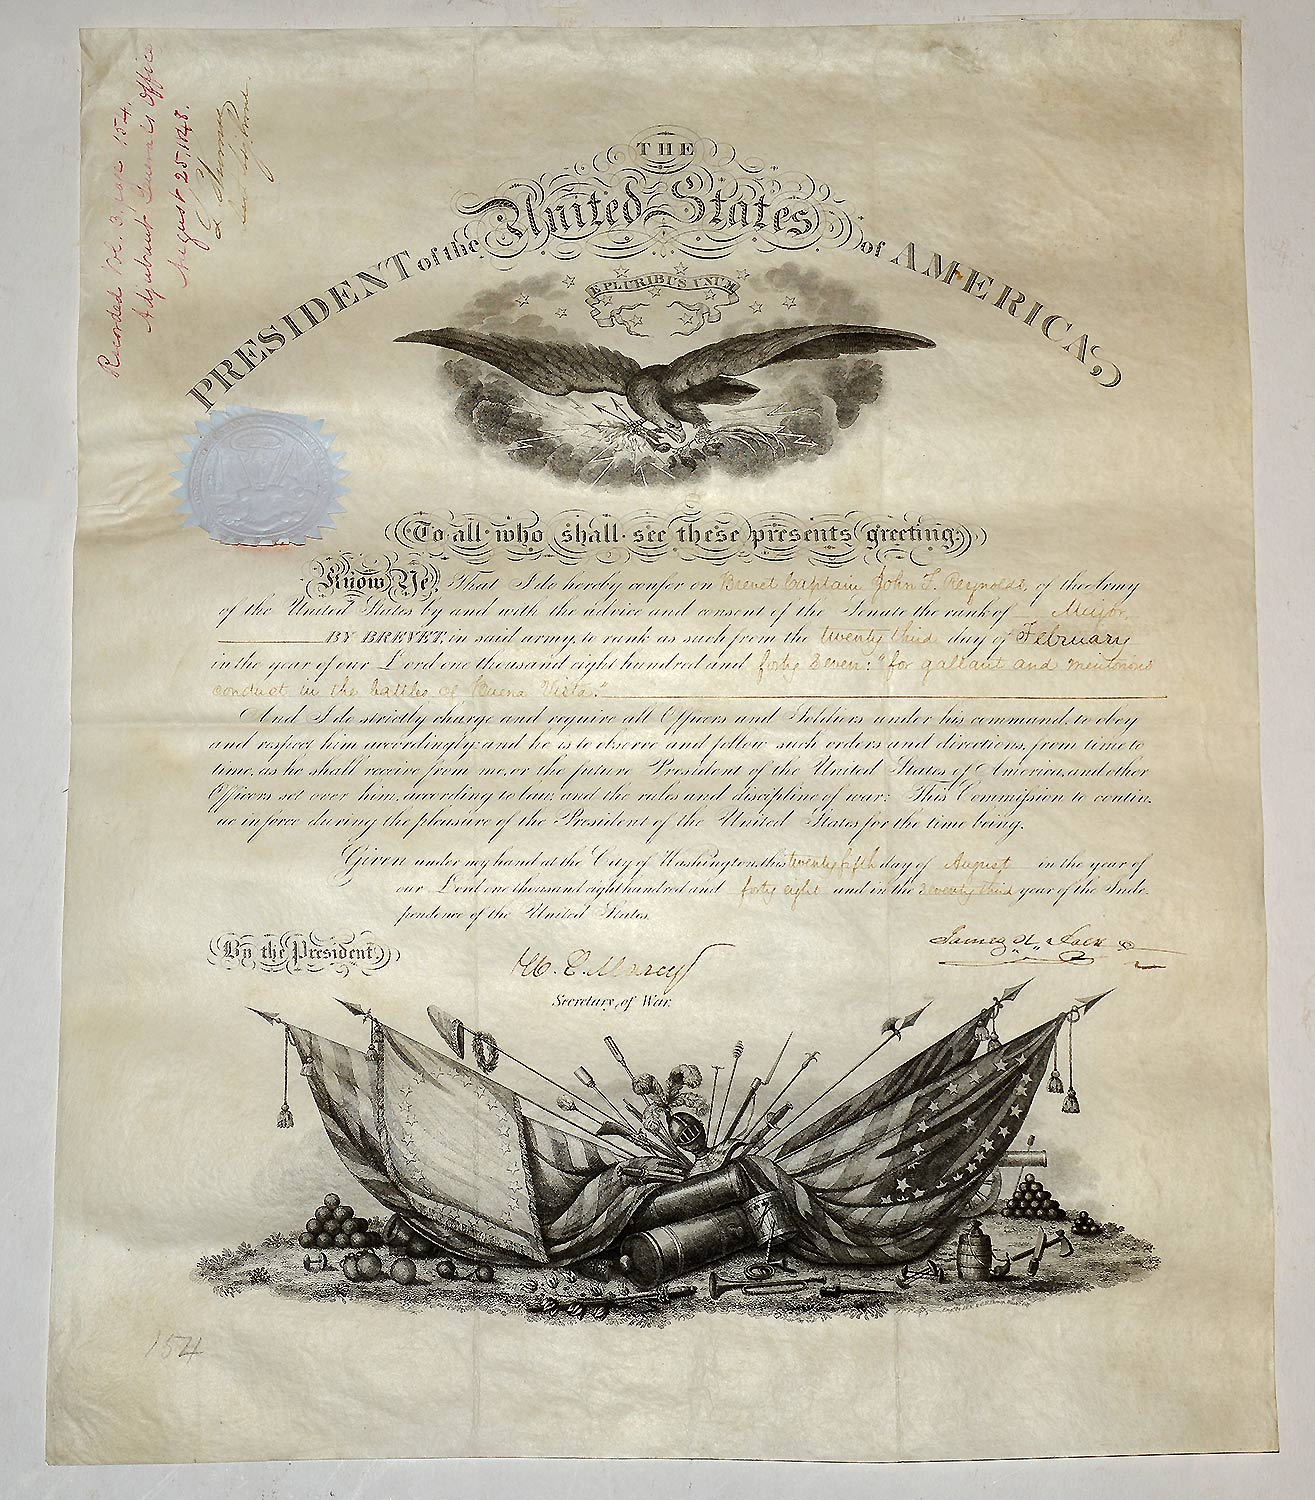 Recorded Vol. 3, page 154.
Adjutant General's Office
August 25, 1848.
THE
United States
PRESIDENT of the of AMERICA,
E PLURIBUS UNUM
To all who shall see these presents greeting:
Know Ye, That I do hereby confer on Brevet Captain John F. Reynolds, of the Army
of the United States by and with the advice and consent of the Senate the rank of Major,
BY BREVET, in said army, to rank as such from the twenty third day of February
in the year of our Lord one thousand eight hundred and forty seven: "for gallant and meritorious
conduct in the battle of Buena Vista."
And I do strictly charge and require all Officers and Soldiers under his command, to obey
and respect him accordingly; and he is to observe and follow such orders and directions, from time to
time, as he shall receive from me, or the future President of the United States of America, and other
Officers set over him, according to law, and the rules and discipline of war: This Commission to contin-
ue in force during the pleasure of the President of the United States for the time being.
Given under my hand at the City of Washington, this twenty fifth day of August in the year of
our Lord one thousand eight hundred and forty eight and in the seventy third year of the Inde-
pendence of the United States.
By the President,
James K. Polk
W. L. Marcy
Secretary of War.
154